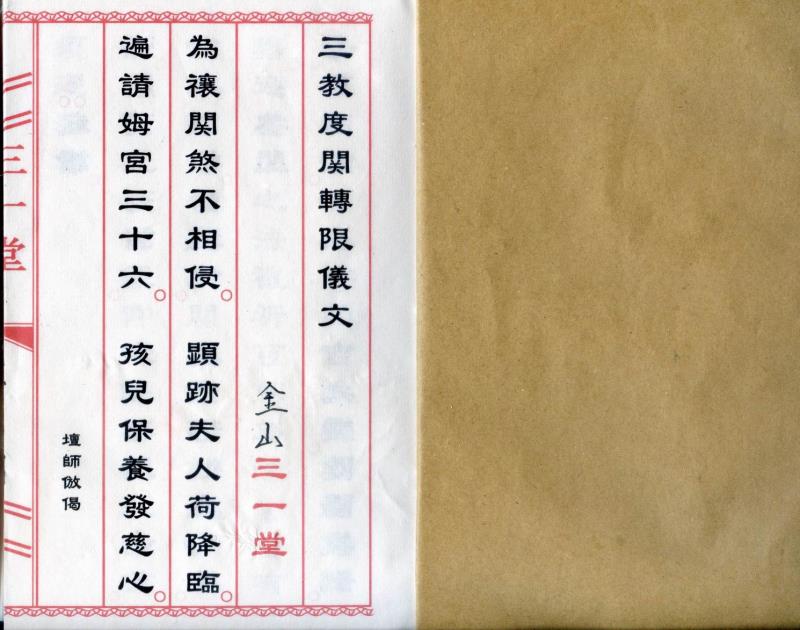 三教度関轉限儀文
金山三一堂
為禳関煞不相侵。顕跡夫人荷降臨。
遍請姆宮三十六。孩兒保養發慈心。
壇師倣偈
三一堂